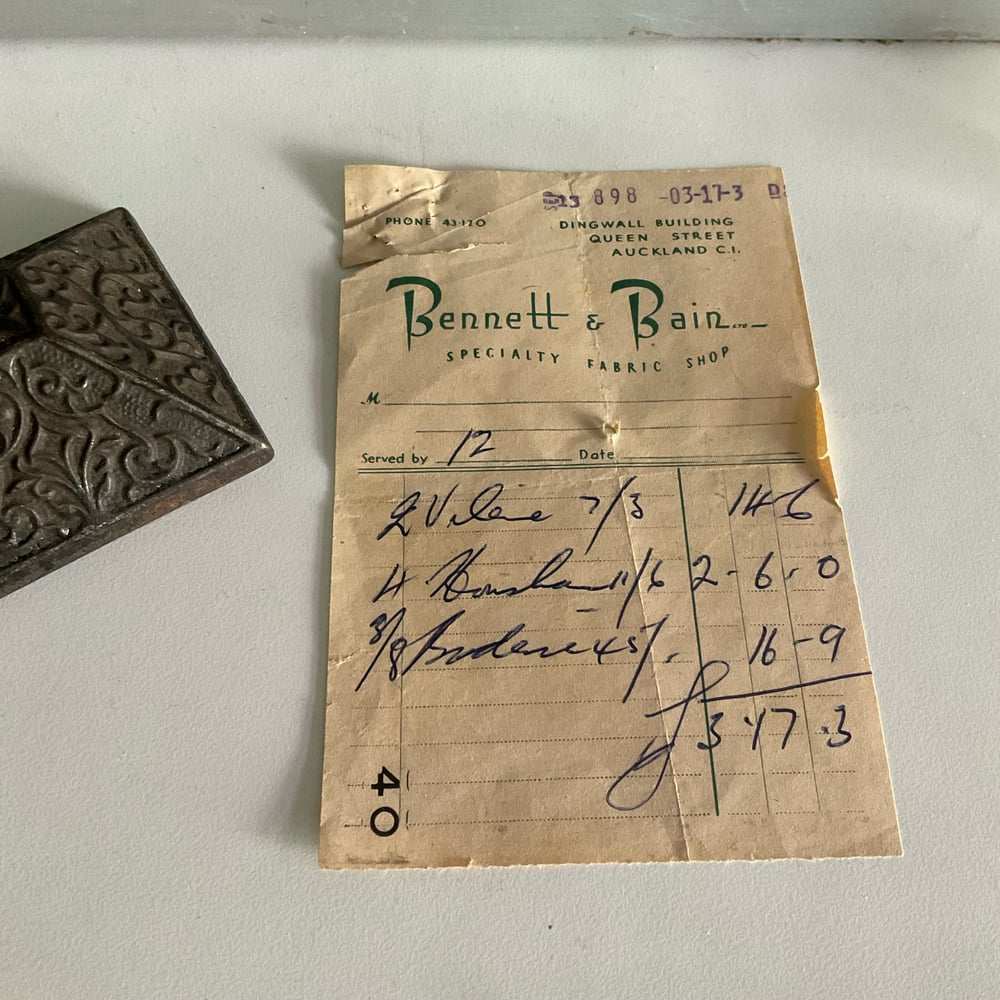 898 -03-17-3
PHONE 43-120
DINGWALL BUILDING
QUEEN STREET
AUCKLAND C.1.
Bennett & Bain LTD
SPECIALTY FABRIC SHOP
M
Served by 12 Date
2 Vilene 7/3 14 6
4 11/6 2-6-0
3/8 45/. 16-9
£3 17 3
40